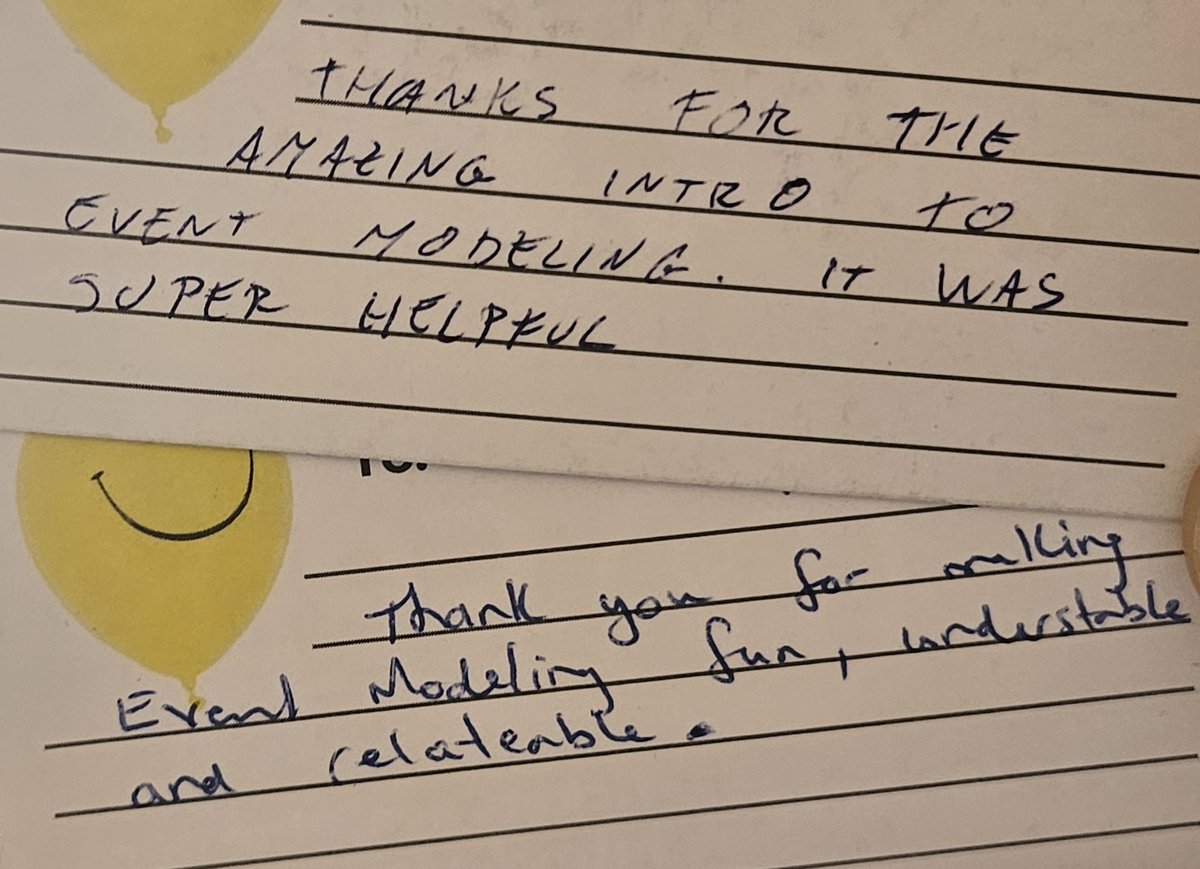 THANKS FOR THE
AMAZING INTRO TO
EVENT MODELING. IT WAS
SUPER HELPFUL
To:
Thank you for making
Event Modeling fun, understable
and relateable.